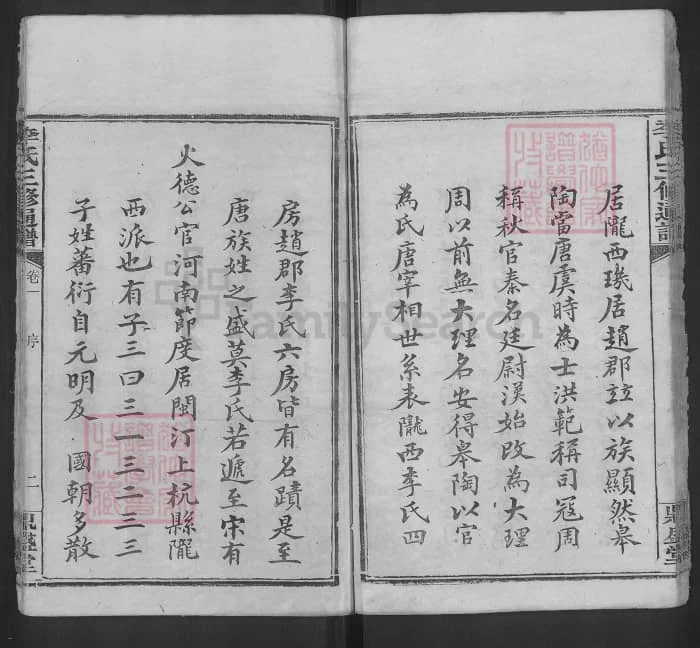 居隴西璣居趙郡竝以族顯然皋
陶當唐虞時為士洪範稱司寇周
稱秋官秦名廷尉漢始改為大理
周以前無大理名安得皋陶以官
為氏唐宰相世系表隴西李氏四
房趙郡李氏六房皆有名蹟是至
唐族姓之盛莫李氏若遞至宋有
火德公官河南節度居閩汀上杭縣隴
西派也有子三曰三一三二三三
子姓蕃衍自元明及 國朝多散
李氏三修通譜
卷一
序
二
鼎盛堂
李氏三修通譜
鼎盛堂
FamilySearch